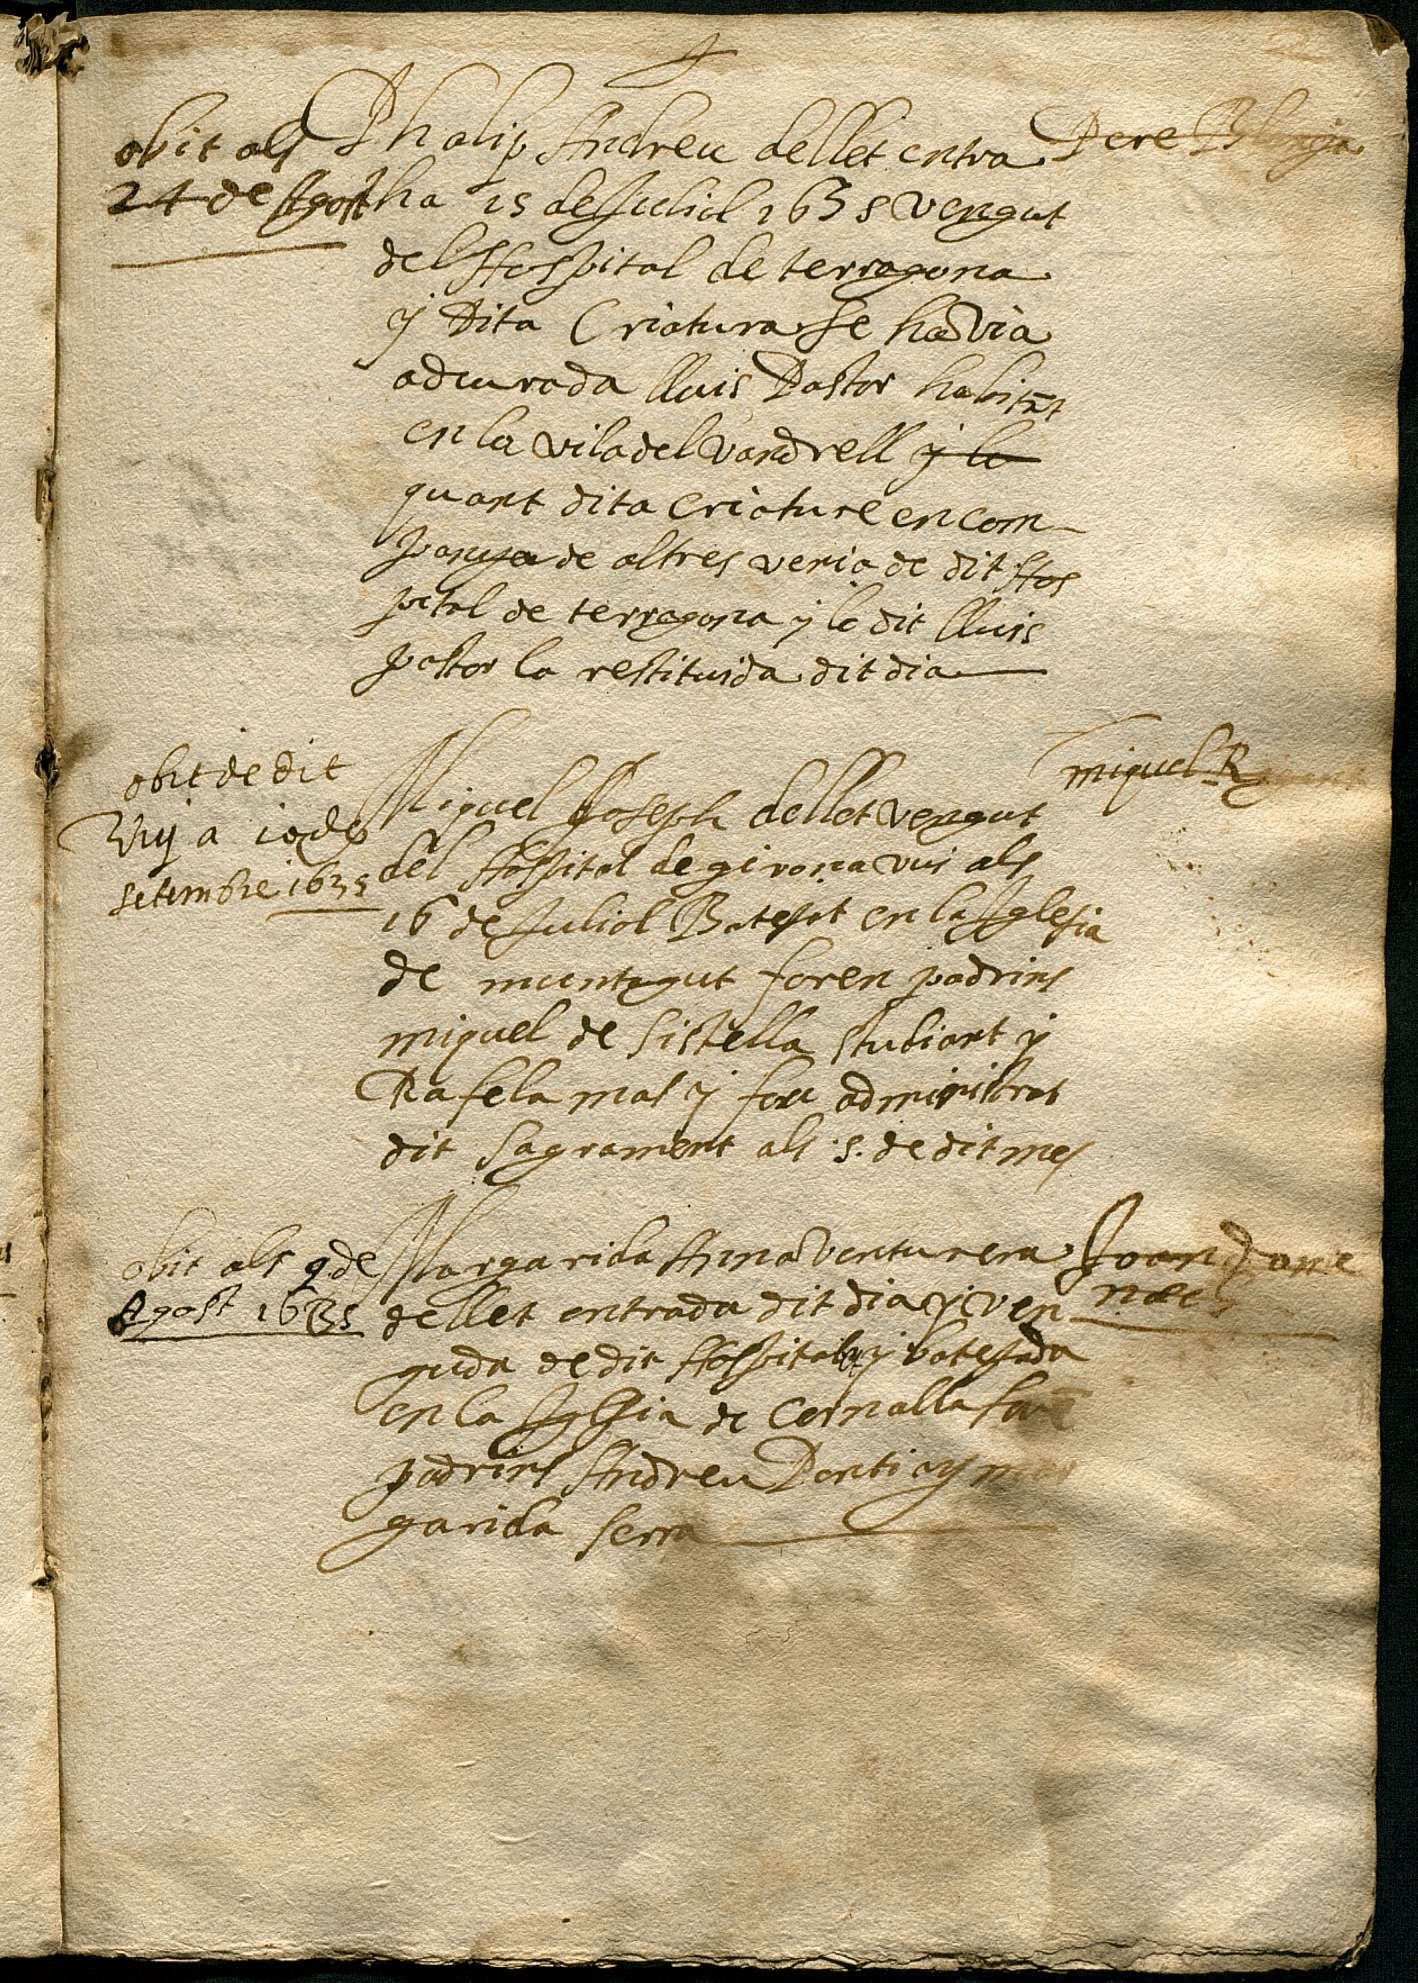 obit als
24 de Agost
Phalip Andreu dellet entra Pere
ha 15 de Juliol 1635 vengut
del Hospital de terragona
y dita Criatura se havia
adcurada lluis Pastor habitāt
en la vila del vandrell y lo
quant dita criature en com-
panya de altres venia de dit Hos
pital de terragona y lo dit lluis
pastor la restituida dit dia
obit de dit
Vuy a 10 de
setembre 1635
Miquel Joseph dellet vengut
miquel
del Hospital de girona vui als
16 de Juliol Batejat en la Iglesia
de muntagut foren padrins
miquel de sistella studiant y
Rafela mas y fou administrat
dit sagrament als .5. de dit mes
obit als 9 de
Agost 1635
Margarida Anna Venturera Joan
dellet entrada dit dia y ven
guda de dit Hospital y batejada
en la Iglesia de Cornalla forē
padrins Andreu Ponti y mar
garida serra